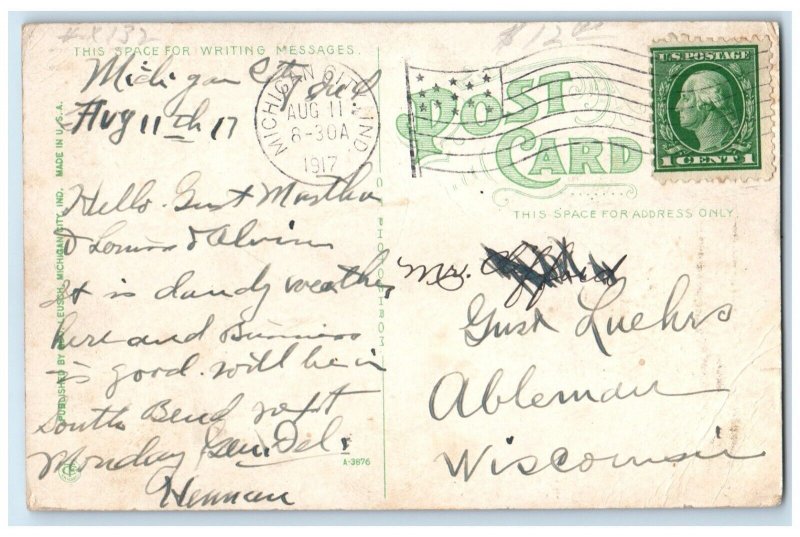 $12.00
THIS SPACE FOR WRITING MESSAGES.
Michigan City Ind
Aug 11th 17
Hello Gust Martha
& Louisa & Alvin
It is dandy weather
here and Business
is good. will be in
South Bend next
Monday Gen. Del.
Herman
MICHIGAN CITY, IND.
AUG 11
8-30A
1917
POST
CARD
U.S. POSTAGE
1 CENT 1
THIS SPACE FOR ADDRESS ONLY.
Mr.
Gust Luehrs
Ableman
Wisconsin
MICHIGAN CITY, IND. MADE IN U.S.A.
PUBLISHED BY
A-3876